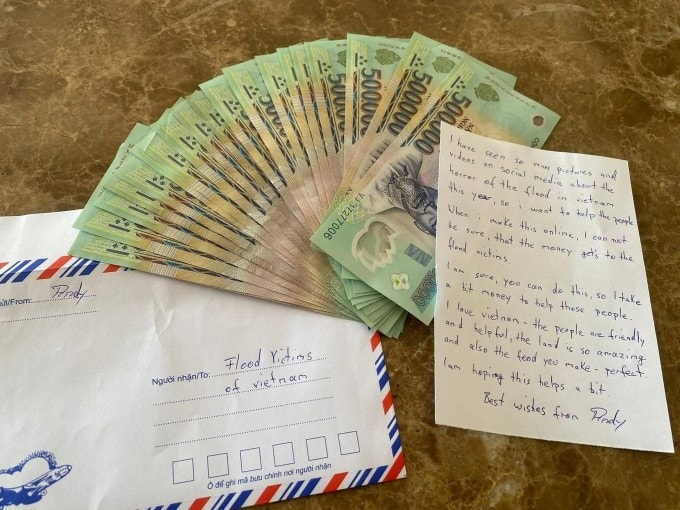 500000
500000
500.000
ửi/From:
Người nhận/To: Flood Victims
of vietnam
Ô để ghi mã bưu chính nơi người nhận
I have seen so many pictures and
videos on social media about the
horror of the flood in vietnam
this year, so i want to help the people.
When i make this online, I can not
be sure, that the money gets to the
flood victims.
I am sure, you can do this, so I take
a bit money to help those people.
I love vietnam - the people are friendly
and helpful, the land is so amazing
and also the food you make - perfect.
I am hoping this helps a bit.
Best wishes from